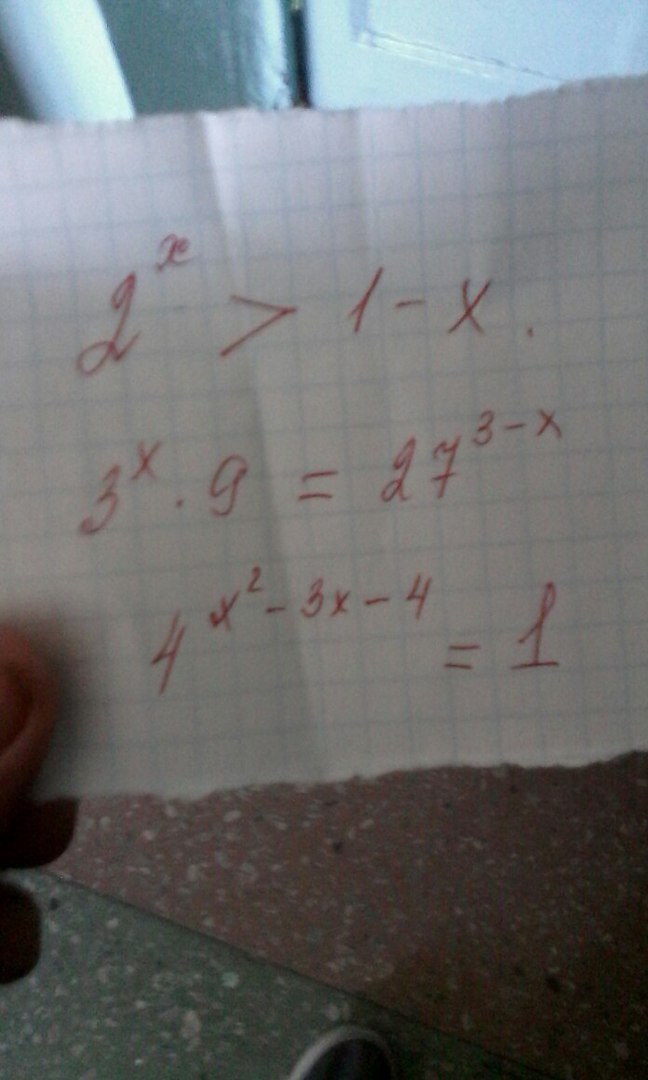 2^x > 1 - x.
3^x · 9 = 27^{3-x}
4^{x^2 - 3x - 4} = 1